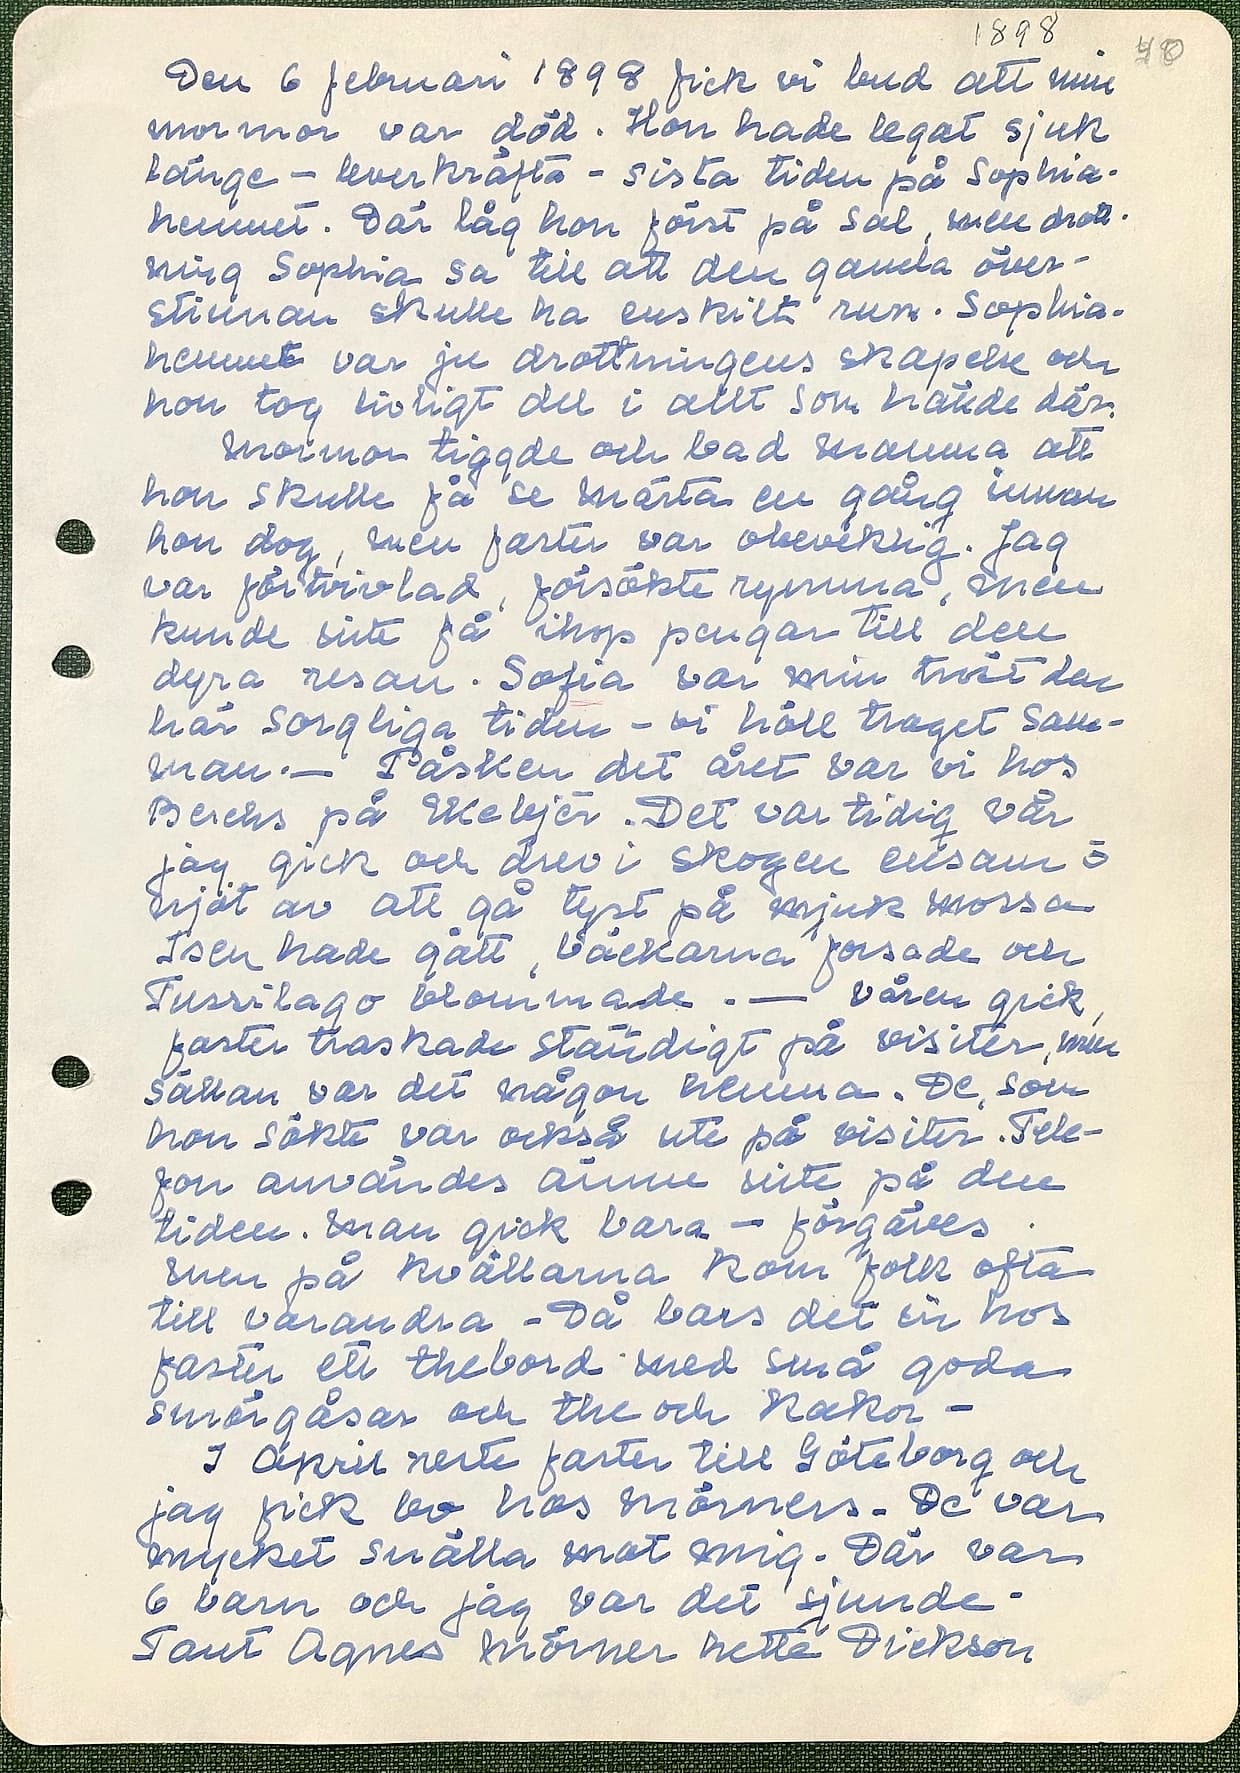 1898
Den 6 februari 1898 fick vi bud att min
mormor var död. Hon hade legat sjuk
länge – leverkräfta – sista tiden på Sophia-
hemmet. Där låg hon först på sal, men drott-
ning Sophia sa till att den gamla över-
stinnan skulle ha enskilt rum. Sophia-
hemmet var ju drottningens skapelse och
hon tog livligt del i allt som hände där.
Mormor tiggde och bad mamma att
hon skulle få se Märta en gång innan
hon dog, men faster var obeveklig. Jag
var förtvivlad, försökte rymma, men
kunde inte få ihop pengar till den
dyra resan. Sofia var min tröst den
här sorgliga tiden – vi höll troget sam-
man. — Påsken det året var vi hos
Berchs på Ekebjér. Det var tidig vår
jag gick och drev i skogen ensam o
njöt av att gå tyst på mjuk mossa
Isen hade gått, bäckarna forsade och
Tussilago blommade. — Våren gick,
faster traskade ständigt på visiter, men
sällan var det någon hemma. De, som
hon sökte var också ute på visiter. Tele-
fon användes ännu inte på den
tiden. Man gick bara – förgäves.
Men på kvällarna kom folk ofta
till varandra – Då bars det in hos
faster ett thebord med små goda
smörgåsar och the och kakor –
I April reste faster till Göteborg och
jag fick bo hos Mörners. De var
mycket snälla mot mig. Där var
6 barn och jag var det sjunde.
Tant Agnes Mörner hette Dickson